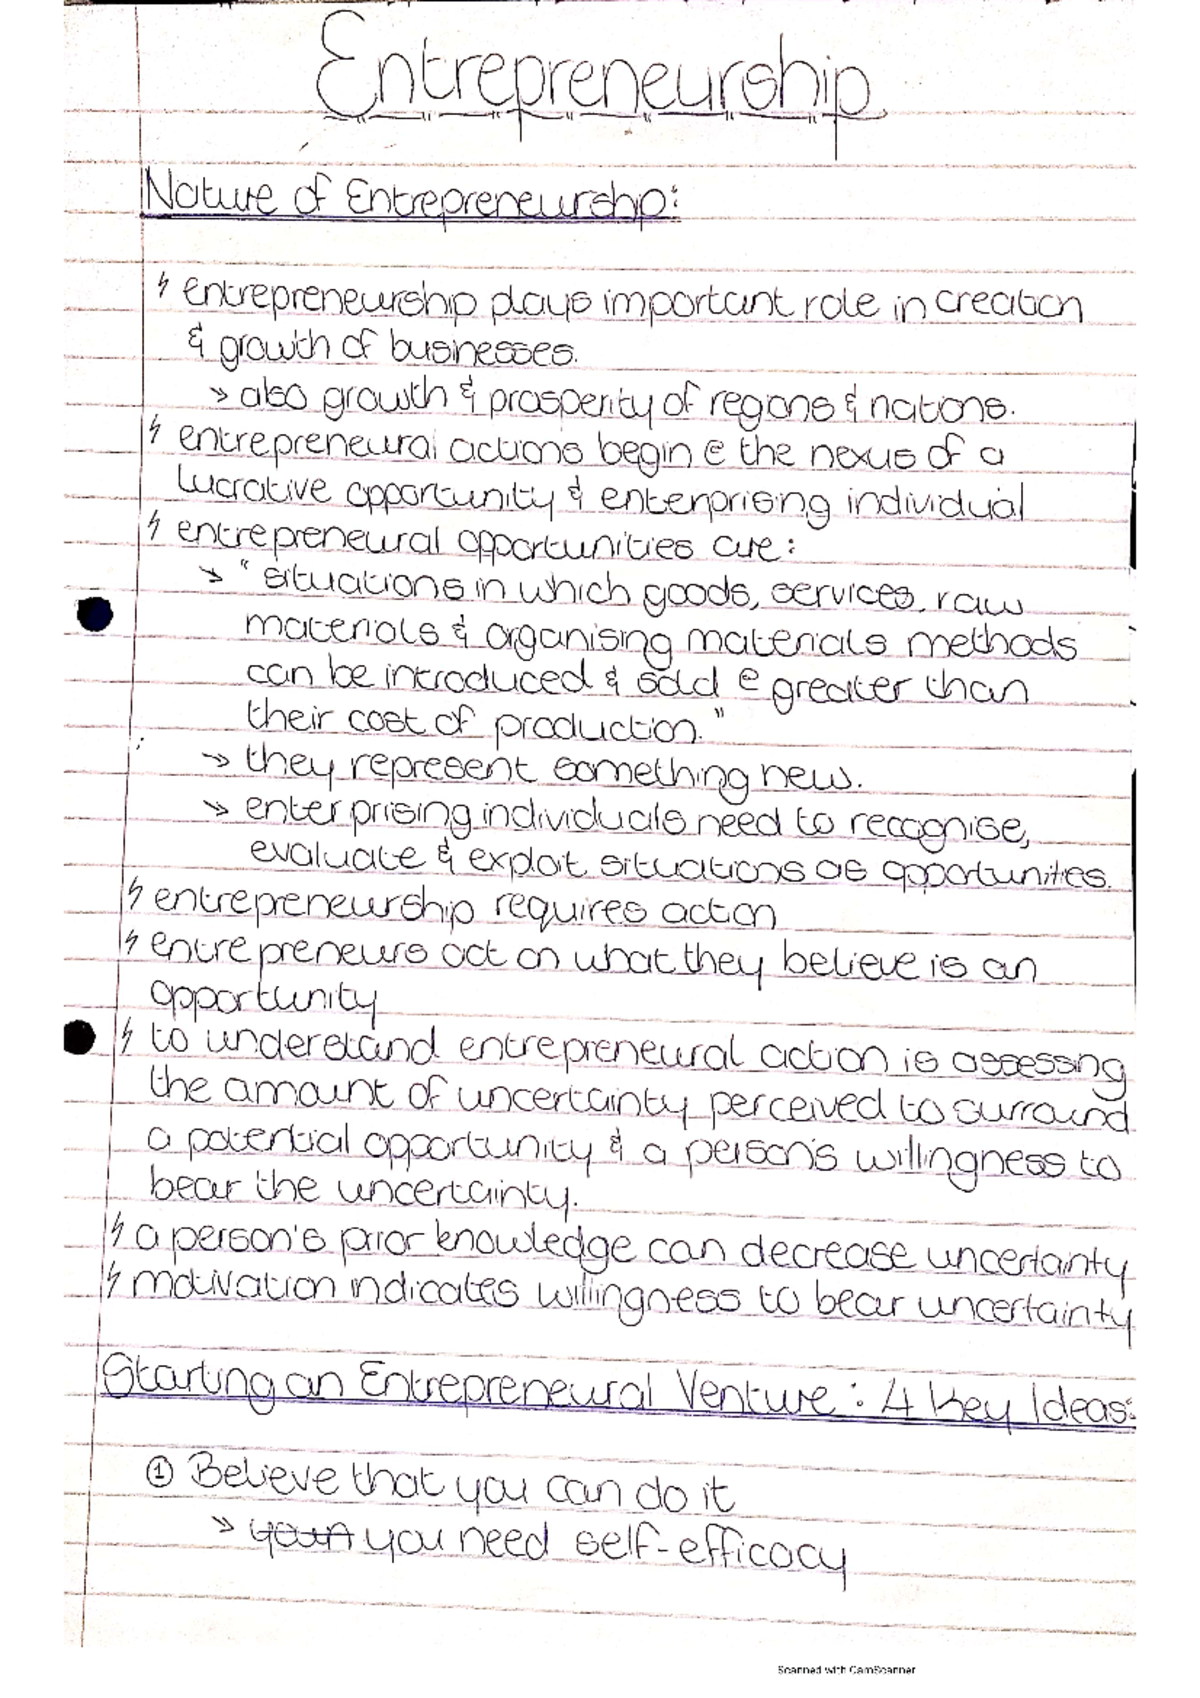 Entrepreneurship
Nature of Entrepreneurship:
ϟ entrepreneurship plays important role in creation
& growth of businesses.
↠ also growth & prosperity of regions & nations.
ϟ entrepreneural actions begin @ the nexus of a
lucrative opportunity & enterprising individual
ϟ entrepreneural opportunities are:
↠ "situations in which goods, services, raw
materials & organising materials methods
can be introduced & sold @ greater than
their cost of production."
↠ they represent something new.
↠ enterprising individuals need to recognise,
evaluate & exploit situations as opportunities.
ϟ entrepreneurship requires action
ϟ entrepreneurs act on what they believe is an
opportunity
ϟ to understand entrepreneural action is assessing
the amount of uncertainty perceived to surround
a potential opportunity & a person's willingness to
bear the uncertainty.
ϟ a person's prior knowledge can decrease uncertainty
ϟ motivation indicates willingness to bear uncertainty
Starting an Entrepreneural Venture: 4 Key Ideas:
① Believe that you can do it
↠ you need self-efficacy
Scanned with CamScanner